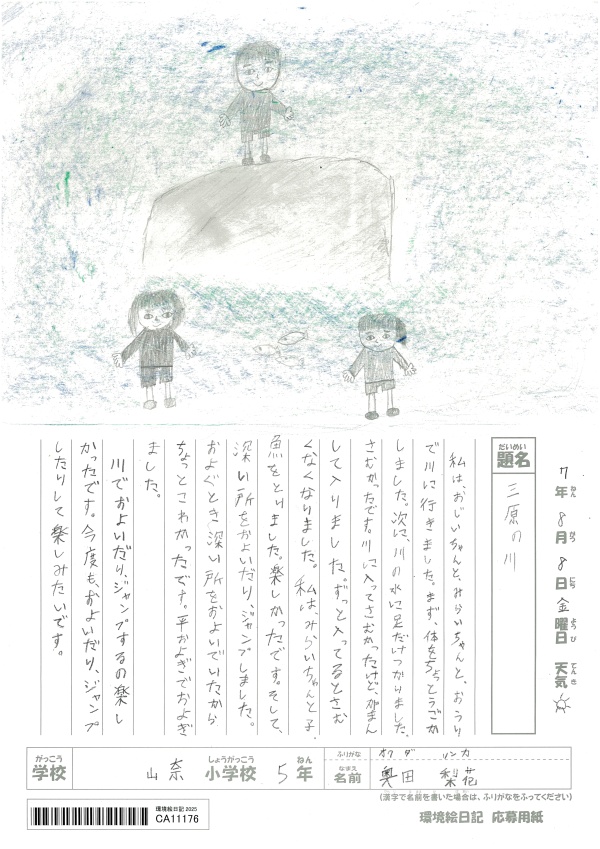 7年8月8日金曜日 天気
ねん がつ にち ようび てんき
だいめい
題名
三原の川
私は、おじいちゃんと、みらいちゃんと、おうり
で川に行きました。まず、体をちょっとうごか
しました。次に、川の水に足だけつかりました。
さむかったです。川に入ってさむかったけど、がまん
して入りました。ずっと入ってるとさむ
くなくなりました。私は、みらいちゃんと子
魚をとりました。楽しかったです。そして、
深い所をおよいだり、ジャンプしました。
およぐとき深い所をおよいでいたから
ちょっとこわかったです。平およぎでおよぎ
ました。
川でおよいだり、ジャンプするの楽し
かったです。今度も、およいだり、ジャンプ
したりして楽しみたいです。
がっこう
学校
山奈
しょうがっこう
小学校
5
ねん
年
ふりがな
オクダ リンカ
なまえ
名前
奥田 梨花
(漢字で名前を書いた場合は、ふりがなをふってください)
環境絵日記 2025
CA11176
環境絵日記 応募用紙